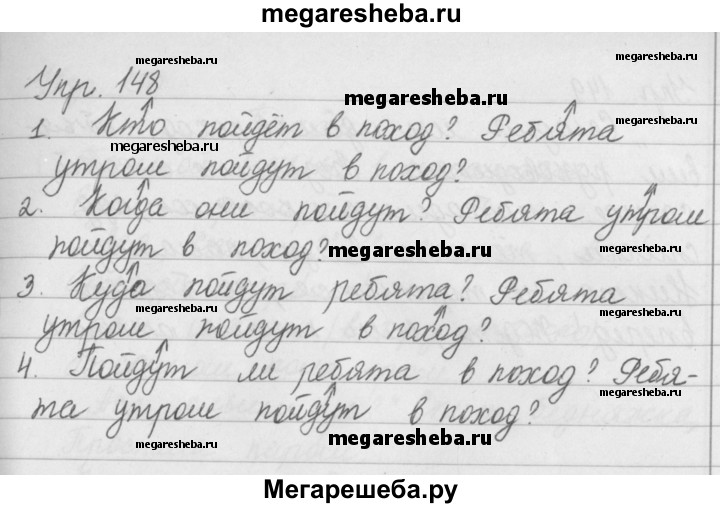 megaresheba.ru
megaresheba.ru
megaresheba.ru
Упр. 148
megaresheba.ru
1. Кто пойдёт в поход? Ребята
megaresheba.ru
утром пойдут в поход?
2. Когда они пойдут? Ребята утром
пойдут в поход?
megaresheba.ru
3. Куда пойдут ребята? Ребята
megaresheba.ru
megaresheba.ru
утром пойдут в поход?
4. Пойдут ли ребята в поход? Ребя-
та утром пойдут в поход?
megaresheba.ru
megaresheba.ru
megaresheba.ru
Мегарешеба.ру